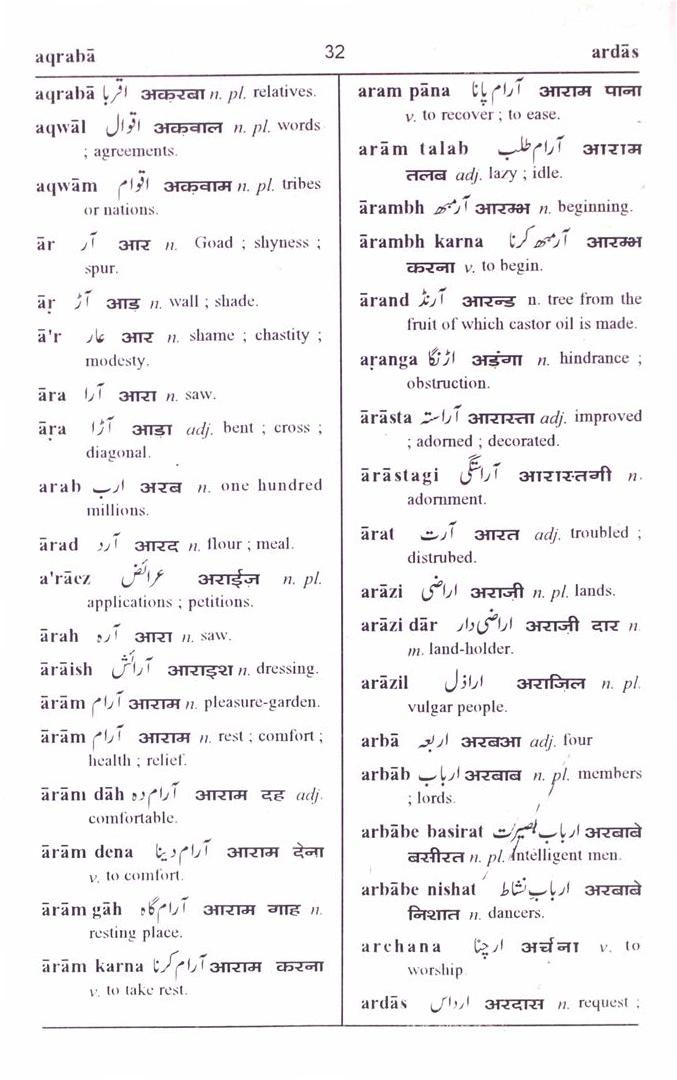 aqrabā 32 ardās
aqrabā اقربا अक़रबा n. pl. relatives.
aqwāl اقوال अक़वाल n. pl. words
; agreements.
aqwām اقوام अक़वाम n. pl. tribes
or nations.
ār آر आर n. Goad ; shyness ;
spur.
āṛ آڑ आड़ n. wall ; shade.
ā'r عار आर n. shame ; chastity ;
modesty.
āra آرا आरा n. saw.
āṛa آڑا आड़ा adj. bent ; cross ;
diagonal.
arab ارب अरब n. one hundred
millions.
ārad آرد आरद n. flour ; meal.
a'rāez عرائض अराईज़ n. pl.
applications ; petitions.
ārah آرہ आरा n. saw.
ārāish آرائش आराइश n. dressing.
ārām آرام आराम n. pleasure-garden.
ārām آرام आराम n. rest ; comfort ;
health ; relief.
ārām dāh آرام دہ आराम दह adj.
comfortable.
ārām dena آرام دینا आराम देना
v. to comfort.
ārām gāh آرام گاہ आराम गाह n.
resting place.
ārām karna آرام کرنا आराम करना
v. to take rest.
aram pāna آرام پانا आराम पाना
v. to recover ; to ease.
arām talab آرام طلب आराम
तलब adj. lazy ; idle.
ārambh آرمبھ आरम्भ n. beginning.
ārambh karna آرمبھ کرنا आरम्भ
करना v. to begin.
ārand آرنڈ आरन्ड n. tree from the
fruit of which castor oil is made.
aṛanga اڑنگا अड़ंगा n. hindrance ;
obstruction.
ārāsta آراستہ आरास्ता adj. improved
; adorned ; decorated.
ārāstagi آراستگی आरास्तगी n.
adornment.
ārat آرت आरत adj. troubled ;
distrubed.
arāzi اراضی अराज़ी n. pl. lands.
arāzi dār اراضی دار अराज़ी दार n.
m. land-holder.
arāzil اراذل अराज़िल n. pl.
vulgar people.
arbā اربعہ अरबआ adj. four
arbāb ارباب अरबाब n. pl. members
; lords.
arbābe basirat ارباب بصیرت अरबाबे
बसीरत n. pl. Intelligent men.
arbābe nishat ارباب نشاط अरबाबे
निशात n. dancers.
archana ارچنا अर्चना v. to
worship
ardās ارداس अरदास n. request ;